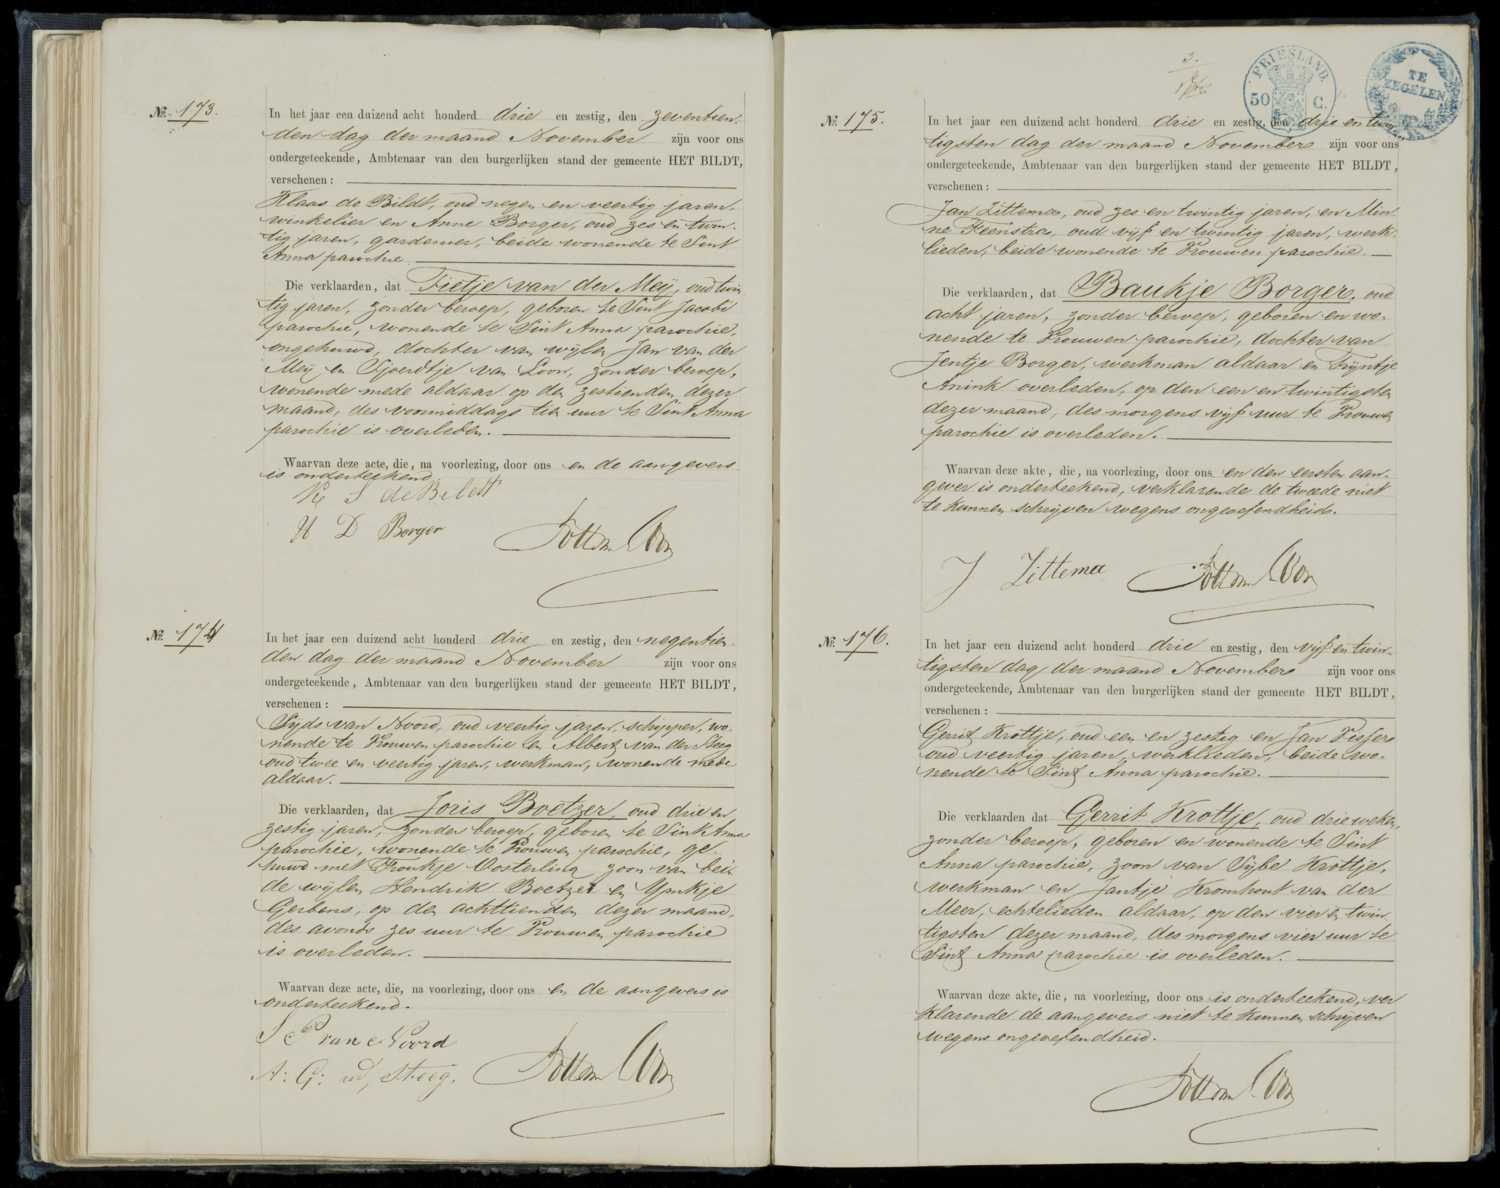 № 173.
In het jaar een duizend acht honderd drie en zestig, den zeventien-
den dag der maand November zijn voor ons
ondergeteekende, Ambtenaar van den burgerlijken stand der gemeente HET BILDT,
verschenen:
Klaas de Bildt, oud negen en veertig jaren,
winkelier en Anne Borger, oud zes en twin-
tig jaren, gardenier, beide wonende te Sint
Anna parochie.
Die verklaarden, dat Fietje van der Meij, oud twin
tig jaren, zonder beroep, geboren te Sint Jacobi
parochie, wonende te Sint Anna parochie,
ongehuwd, dochter van wijlen Jan van der
Meij en Sjoerdtje van Loon, zonder beroep,
wonende mede aldaar op den zestienden dezer
maand, des voormiddags tien uur te Sint Anna
parochie is overleden.
Waarvan deze acte, die, na voorlezing, door ons en de aangevers
is onderteekend
K S de Bildt
D Borger
№ 174
In het jaar een duizend acht honderd drie en zestig, den negentien-
den dag der maand November zijn voor ons
ondergeteekende, Ambtenaar van den burgerlijken stand der gemeente HET BILDT,
verschenen:
Sijds van Noord, oud veertig jaren, schipper, wo-
nende te Vrouwen parochie en Albert van der Steeg
oud twee en veertig jaren, werkman, wonende mede
aldaar.
Die verklaarden, dat Joris Boetzer, oud drie en
zestig jaren, zonder beroep, geboren te Sint Anna
parochie, wonende te Vrouwen parochie, ge-
huwd met Froukje Oosterling zoon van bei-
de wijlen Hendrik Boetzer en Ypukje
Gerbens, op den achttienden dezer maand,
des avonds zes uur te Vrouwen parochie
is overleden.
Waarvan deze acte, die, na voorlezing, door ons en de aangevers is
onderteekend.
S P van Noord
A: G: vd, Steeg.
3.
FRIESLAND.
50 C.
TE
ZEGELEN
№ 175.
In het jaar een duizend acht honderd drie en zestig, den drie en twin
tigsten dag der maand November zijn voor ons
ondergeteekende, Ambtenaar van den burgerlijken stand der gemeente HET BILDT,
verschenen:
Jan Zittema, oud zes en twintig jaren, en Min-
ne Feenstra, oud vijf en twintig jaren, werk-
lieden, beide wonende te Vrouwen parochie.
Die verklaarden, dat Baukje Borger, oud
acht jaren, zonder beroep, geboren en wo-
nende te Vrouwen parochie, dochter van
Jentje Borger, werkman aldaar en Trijntje
Anink overleden, op den een en twintigsten
dezer maand, des morgens vijf uur te Vrouwen
parochie is overleden.
Waarvan deze akte, die, na voorlezing, door ons en den eersten aan-
gever is onderteekend, verklarende de tweede niet
te kunnen schrijven wegens ongeoefendheid.
J Zittema
№ 176.
In het jaar een duizend acht honderd drie en zestig, den vijf en twin-
tigsten dag der maand November zijn voor ons
ondergeteekende, Ambtenaar van den burgerlijken stand der gemeente HET BILDT,
verschenen:
Gerrit Krottje, oud een en zestig en Jan
oud veertig jaren, werklieden, beide wo-
nende te Sint Anna parochie.
Die verklaarden dat Gerrit Krottje, oud drie weken,
zonder beroep, geboren en wonende te Sint
Anna parochie, zoon van Sijbe Krottje,
werkman en Jantje Kromhout van der
Meer, echtelieden aldaar, op den vier en twin
tigsten dezer maand, des morgens vier uur te
Sint Anna parochie is overleden.
Waarvan deze akte, die, na voorlezing, door ons is onderteekend, ver
klarende de aangevers niet te kunnen schrijven
wegens ongeoefendheid.